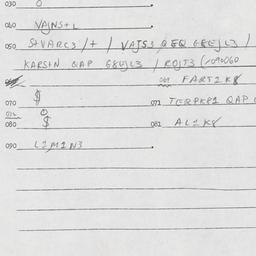 030 0
040 VAJNS+L
050 S+VARC3 /+ / VAJS3 QEQ GEEJL3 /
KARS+N QAP G8UJL3 / ROJT3 (/090060
061 FART2K8
070 $
071 TERPKP1 QAP
072 0
080 $
081 AL2K8
090 L2M2N3